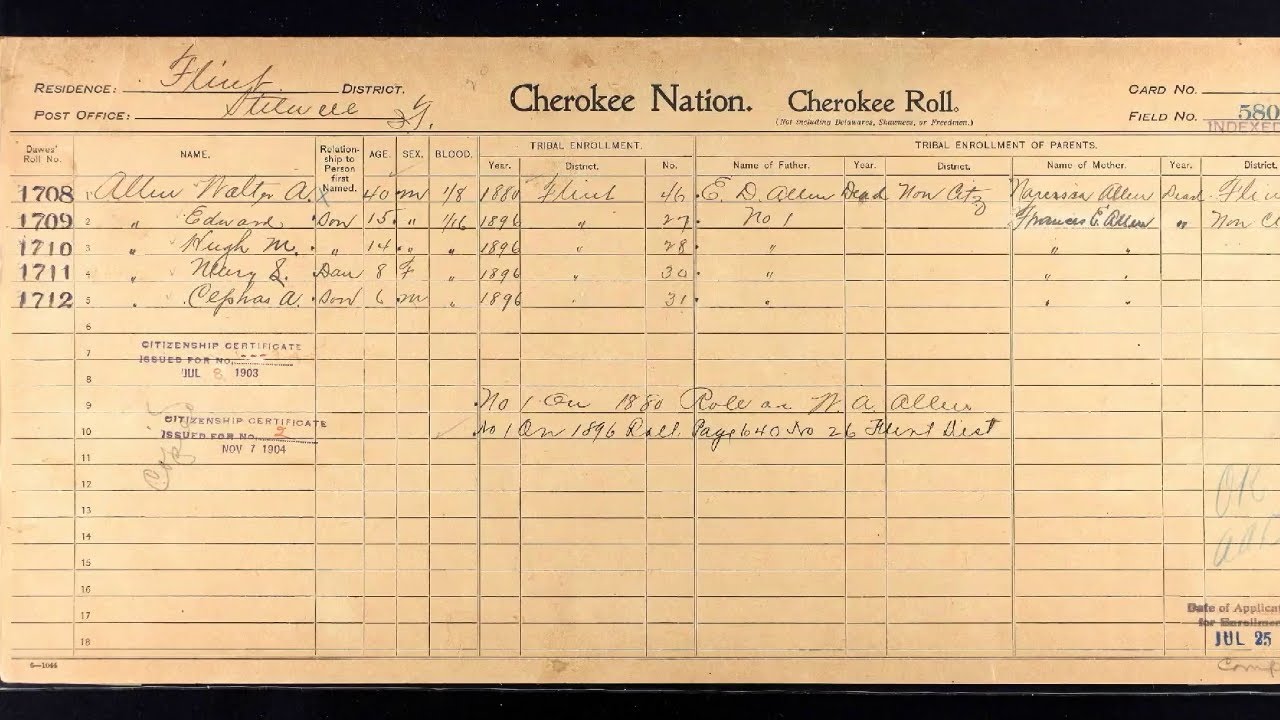 RESIDENCE: Flint DISTRICT.
POST OFFICE: Stilwell I.T.
Cherokee Nation. Cherokee Roll.
(Not including Delawares, Shawnees, or Freedmen.)
CARD NO.
FIELD NO. 580
INDEXED
Dawes' Roll No. NAME. Relationship to Person first Named. AGE. SEX. BLOOD. TRIBAL ENROLLMENT. TRIBAL ENROLLMENT OF PARENTS.
Year. District. No. Name of Father. Year. District. Name of Mother. Year. District.
1708 1 Allen Walter A. 40 M 1/8 1880 Flint 46 E. D. Allen Dead Non Citz Narcissa Allen Dead Flin
1709 2 " Edward Son 15 " 1/16 1896 " 27 No 1 Frances E. Allen " Non C
1710 3 " Hugh M. " 14 " " 1896 " 28 " " "
1711 4 " Mary S. Dau 8 F " 1896 " 30 " " "
1712 5 " Cephas A. Son 6 M " 1896 " 31 " " "
6
7
8
9
10
11
12
13
14
15
16
17
18
CITIZENSHIP CERTIFICATE
ISSUED FOR NO.
JUL 8 1903
CITIZENSHIP CERTIFICATE
ISSUED FOR NO. 2
NOV 7 1904
No 1 On 1880 Roll as W. A. Allen
No 1 On 1896 Roll Page 640 No 26 Flint Dist
OK
Date of Applicat
for Enrollm
JUL 25
Comp
6—1044